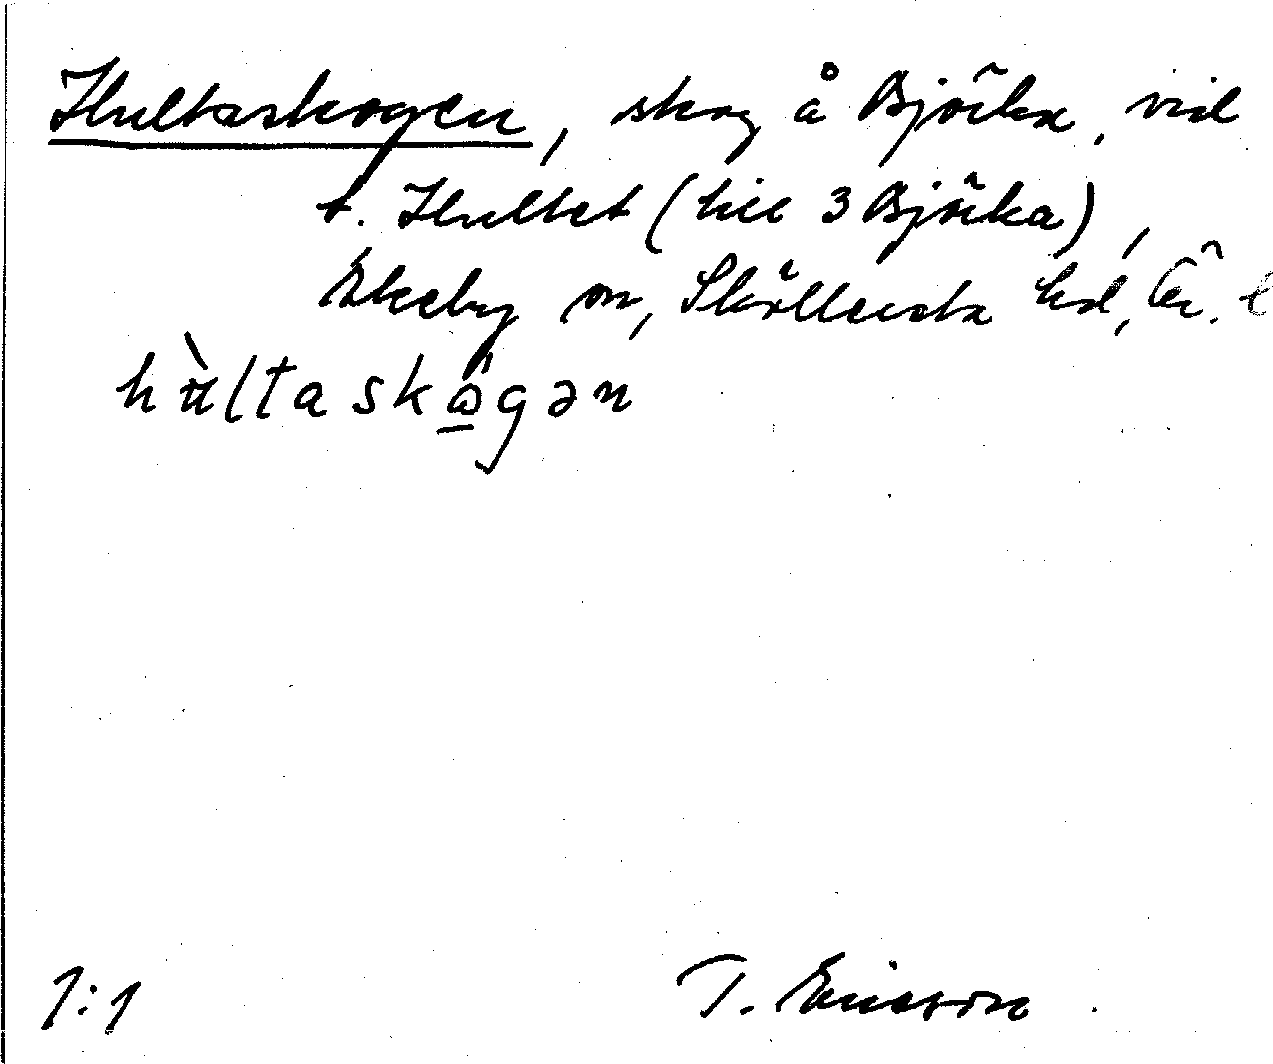 Hultaskogen, skog å Björka, vid
t. Hultet (till 3 Björka),
Ekeby sn, Sköllersta hd, Ör. l
hultaskogən
1:1 T. Ericsson